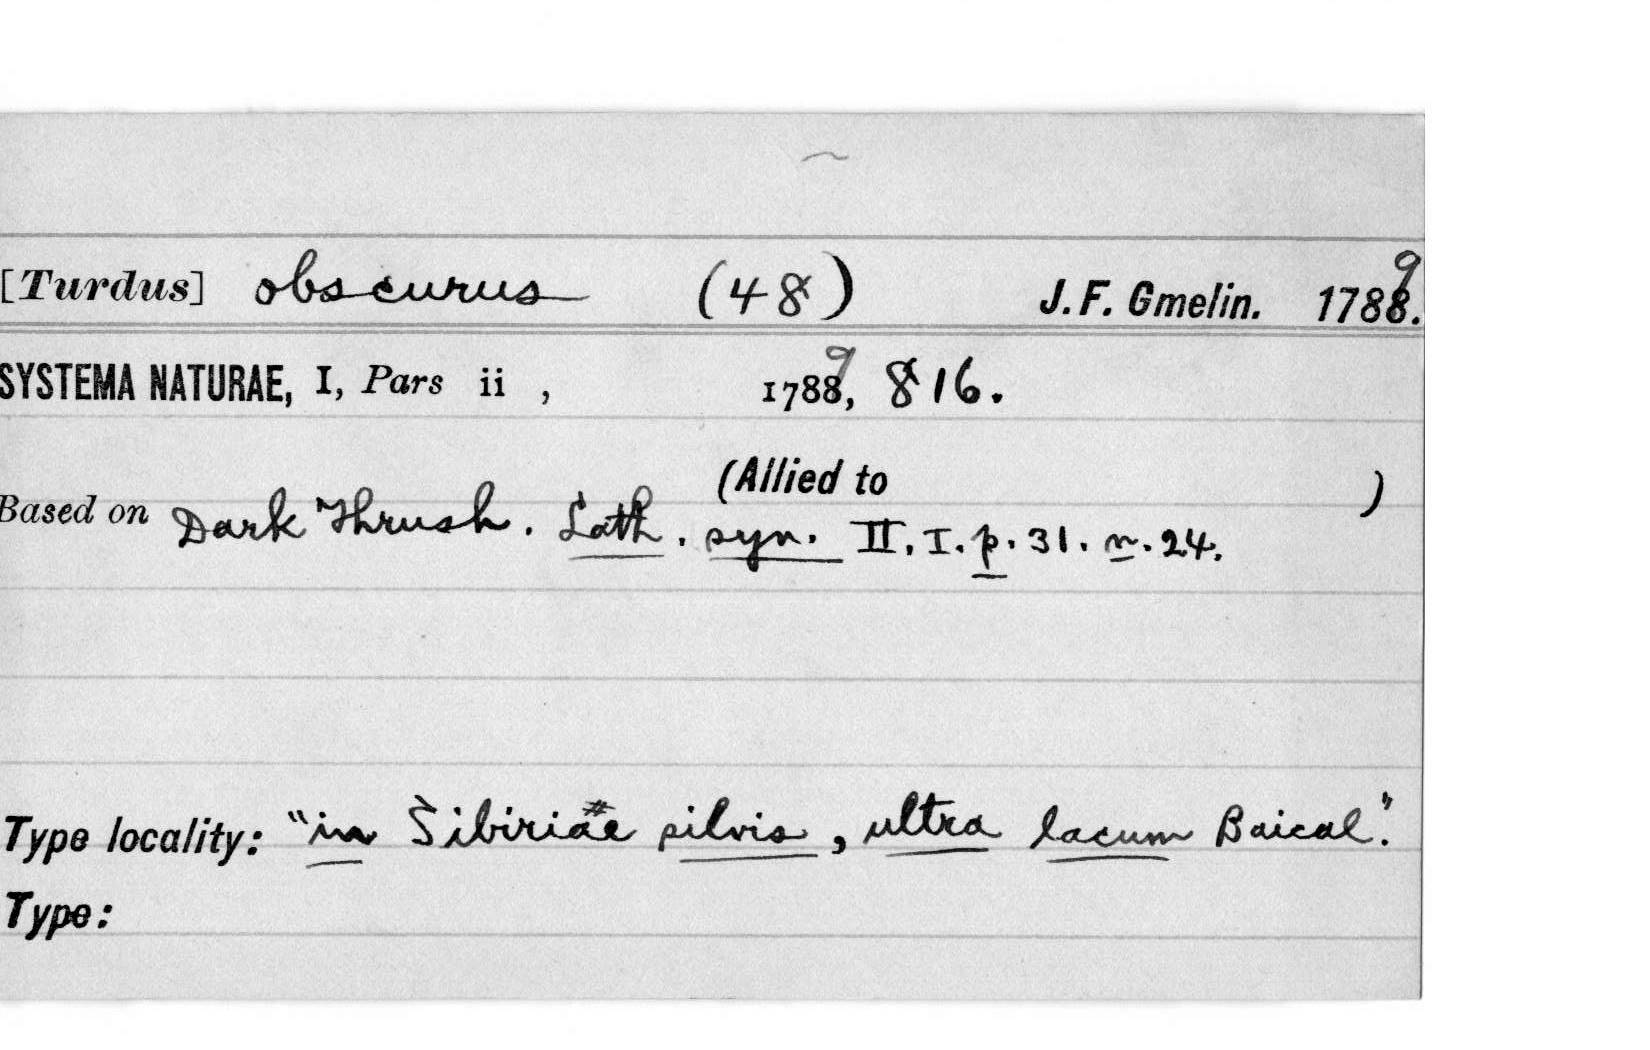 [Turdus] obscurus (48) J. F. Gmelin. 1788. 9
SYSTEMA NATURAE, I, Pars ii , 1788, 9 816.
(Allied to )
Based on Dark Thrush. Lath. syn. II. I. p. 31. n. 24.
Type locality: "in Sibiriae silvis, ultra lacum Baical".
Type: